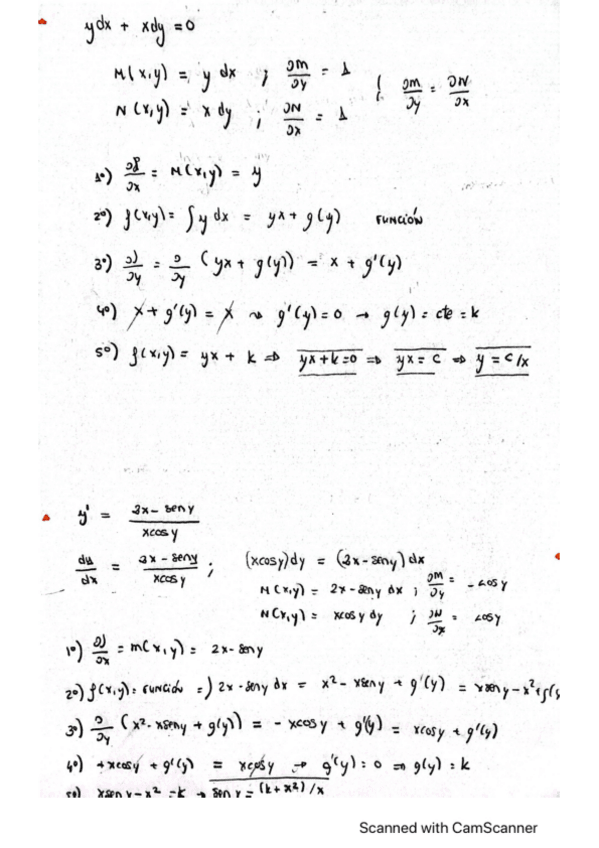 ydx + xdy = 0
M(x,y) = y dx ; ∂M/∂y = 1 { ∂M/∂y = ∂N/∂x
N(x,y) = x dy ; ∂N/∂x = 1
1º) ∂f/∂x = M(x,y) = y
2º) f(x,y) = ∫ y dx = yx + g(y) FUNCIÓN
3º) ∂f/∂y = ∂/∂y (yx + g(y)) = x + g'(y)
4º) x + g'(y) = x ⇝ g'(y) = 0 → g(y) = cte = k
5º) f(x,y) = yx + k ⇒ yx + k = 0 ⇒ yx = c ⇒ y = c/x
y' = 2x - seny / xcosy
dy/dx = 2x - seny / xcosy ; (xcosy)dy = (2x - seny)dx
M(x,y) = 2x - seny dx ; ∂M/∂y = -cosy
N(x,y) = xcosy dy ; ∂N/∂x = cosy
1º) ∂f/∂x = m(x,y) = 2x - seny
2º) f(x,y) = FUNCIÓN =) 2x - seny dx = x² - xseny + g'(y) = xseny - x² + g(y
3º) ∂/∂y (x² - xseny + g(y)) = - xcosy + g'(y) = xcosy + g'(y)
4º) +xcosy + g'(y) = xcosy → g'(y) = 0 ⇒ g(y) = k
5º) xseny - x² = k → seny = (k + x²)/x
Scanned with CamScanner